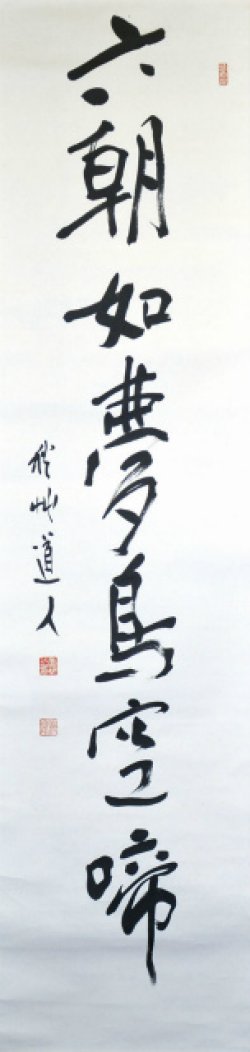 六朝如夢鳥空啼
秋艸道人